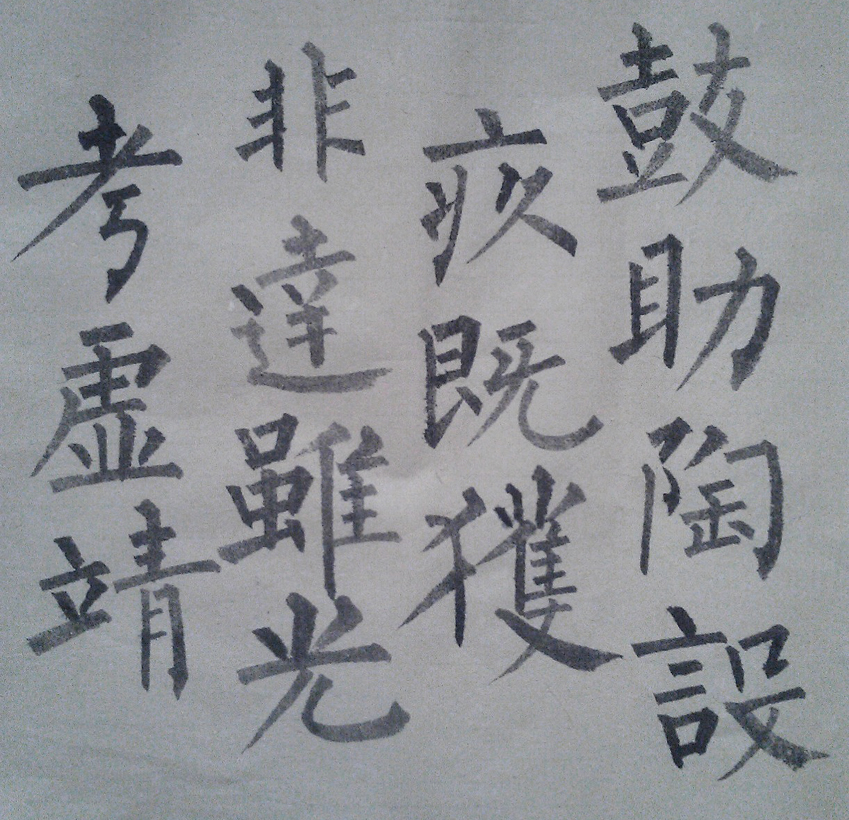 鼓助陶設
疚既獲
非達雖光
考虚靖